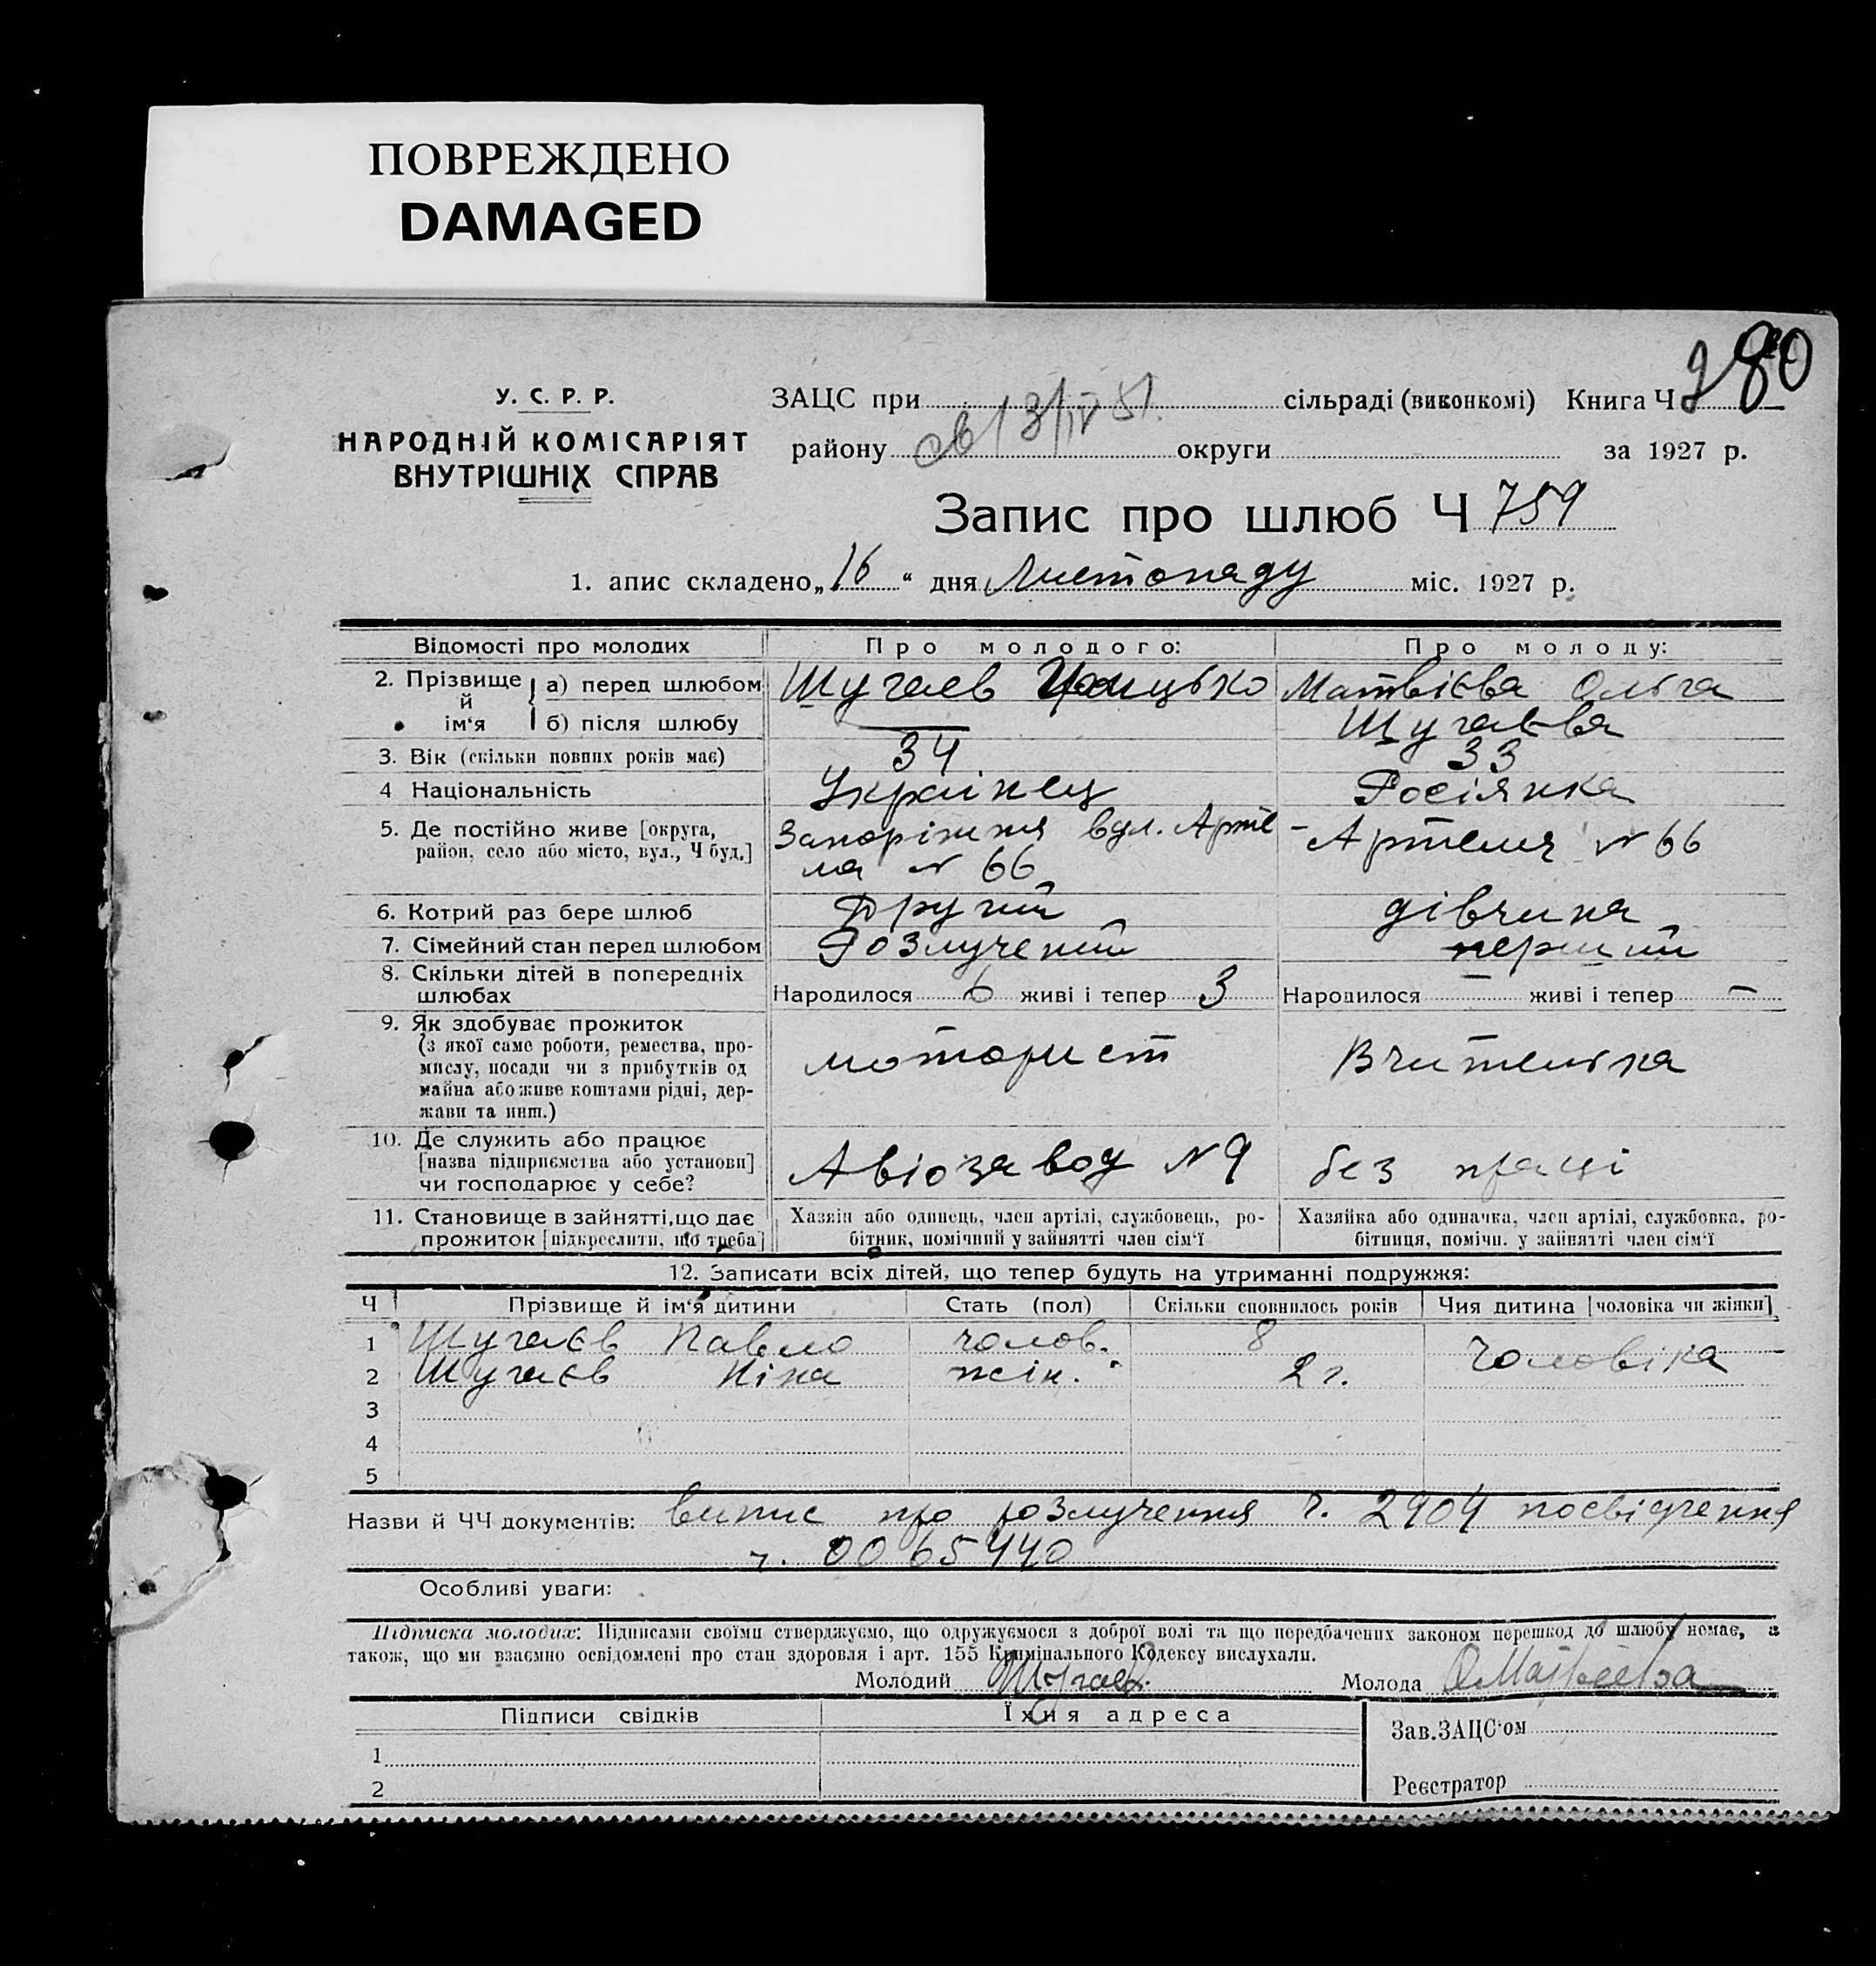 ПОВРЕЖДЕНО
DAMAGED
280
У. С. Р. Р.
НАРОДНІЙ КОМІСАРІЯТ
ВНУТРІШНІХ СПРАВ
ЗАЦС при сільраді (виконкомі) Книга Ч
району округи за 1927 р.
Запис про шлюб Ч 759
1. апис складено „16“ дня Листопаду міс. 1927 р.
Відомості про молодих Про молодого: Про молоду:
2. Прізвище й ім‘я
а) перед шлюбом Шугаєв Грицько Матвієва Ольга
б) після шлюбу — Шугаєва
3. Вік (скільки повних років має) 34 33
4 Національність Українец Росіянка
5. Де постійно живе [округа, Запоріжжя вул. Арте - Артема № 66
район, село або місто, вул., Ч буд.] ма № 66
6. Котрий раз бере шлюб Другий дівчина
7. Сімейний стан перед шлюбом Розлучений перший
8. Скільки дітей в попередніх
шлюбах Народилося 6 живі і тепер 3 Народилося — живі і тепер —
9. Як здобуває прожиток
(з якої саме роботи, ремества, про-
мислу, посади чи з прибутків од моторист Вчителька
майна або живе коштами рідні, дер-
жави та инш.)
10. Де служить або працює
[назва підприємства або установи] Авіозавод № 9 без праці
чи господарює у себе?
11. Становище в зайнятті, що дає Хазяін або одинець, член артілі, службовець, ро- Хазяйка або одиначка, член артілі, службовка, ро-
прожиток [підкреслити, що треба] бітник, помічний у зайнятті член сім‘ї бітниця, помічн. у зайнятті член сім‘ї
12. Записати всіх дітей, що тепер будуть на утриманні подружжя:
Ч Прізвище й ім‘я дитини Стать (пол) Скільки сповнилось років Чия дитина [чоловіка чи жінки]
1 Шугаєв Павло чолов. 8 Чоловіка
2 Шугаєв Ніна жін. 2 г.
3
4
5
Назви й ЧЧ документів: випис про розлучення ч. 2904 посвідчення
ч. 0065440
Особливі уваги:
Підписка молодих: Підписами своїми стверджуємо, що одружуємося з доброї волі та що передбачених законом перешкод до шлюбу немає, а
також, що ми взаємно освідомлені про стан здоровля і арт. 155 Кримінального Кодексу вислухали.
Молодий Шугаев Молода ОМатвеева
Підписи свідків Їхня адреса Зав.ЗАЦС‘ом
1
2 Реєстратор